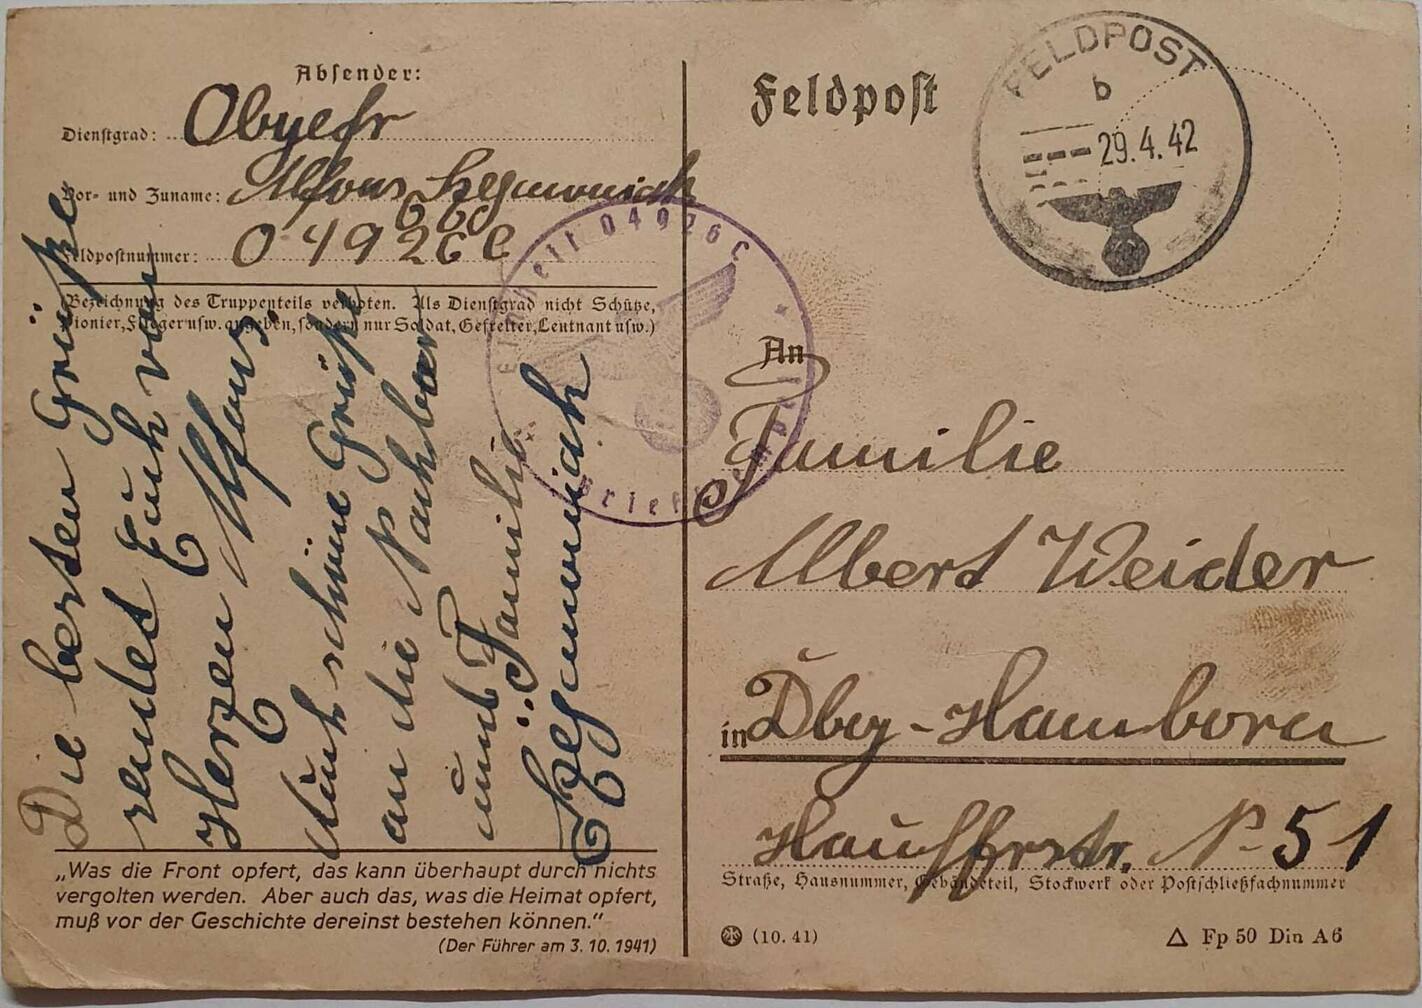 Absender:
Dienstgrad: Obgefr
Vor- und Zuname: Alfons Szymoniak
Feldpostnummer: 04926 C
(Bezeichnung des Truppenteils verboten. Als Dienstgrad nicht Schütze,
Pionier, Flieger usw. angeben, sondern nur Soldat, Gefreiter, Leutnant usw.)
Die besten Grüße
sendet Euch von
Herzen Alfons.
Auch schöne Grüße
an die Nachbarn
und Familie
Szymoniak
„Was die Front opfert, das kann überhaupt durch nichts
vergolten werden. Aber auch das, was die Heimat opfert,
muß vor der Geschichte dereinst bestehen können.“
(Der Führer am 3. 10. 1941)
Einheit 04926 C
Briefstempel
Feldpost
FELDPOST
b
29.4.42
An
Familie
Albert Weider
in Dbg-Hamborn
N° 51
Straße, Hausnummer, Gebäudeteil, Stockwerk oder Postschließfachnummer
(10. 41)
Fp 50 Din A6